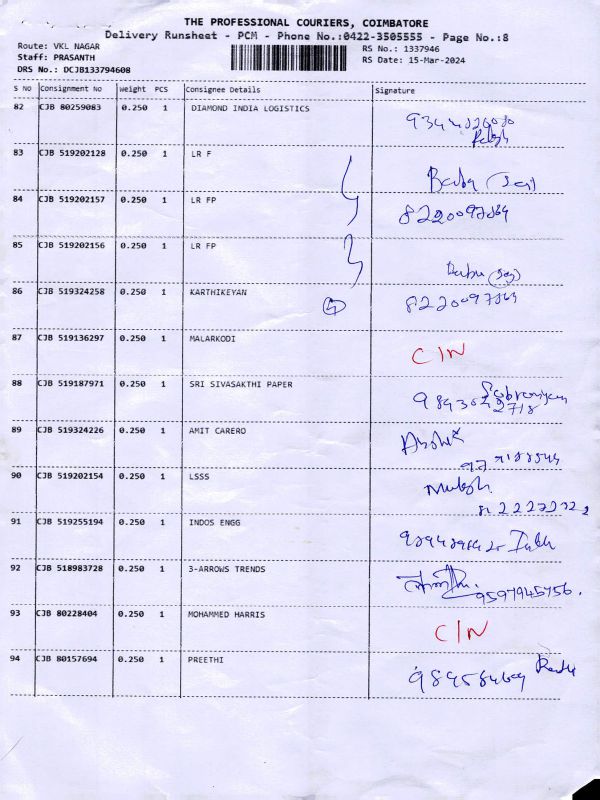 THE PROFESSIONAL COURIERS, COIMBATORE
Delivery Runsheet - PCM - Phone No.:0422-3505555 - Page No.:8
Route: VKL NAGAR
Staff: PRASANTH
DRS No.: DCJB133794608
RS No.: 1337946
RS Date: 15-Mar-2024
S NO Consignment No Weight PCS Consignee Details Signature
82 CJB 80259083 0.250 1 DIAMOND INDIA LOGISTICS
83 CJB 519202128 0.250 1 LR F
84 CJB 519202157 0.250 1 LR FP
85 CJB 519202156 0.250 1 LR FP
86 CJB 519324258 0.250 1 KARTHIKEYAN
87 CJB 519136297 0.250 1 MALARKODI C/N
88 CJB 519187971 0.250 1 SRI SIVASAKTHI PAPER
89 CJB 519324226 0.250 1 AMIT CARERO
90 CJB 519202154 0.250 1 LSSS
91 CJB 519255194 0.250 1 INDOS ENGG
92 CJB 518983728 0.250 1 3-ARROWS TRENDS 9597945756.
93 CJB 80228404 0.250 1 MOHAMMED HARRIS C/N
94 CJB 80157694 0.250 1 PREETHI